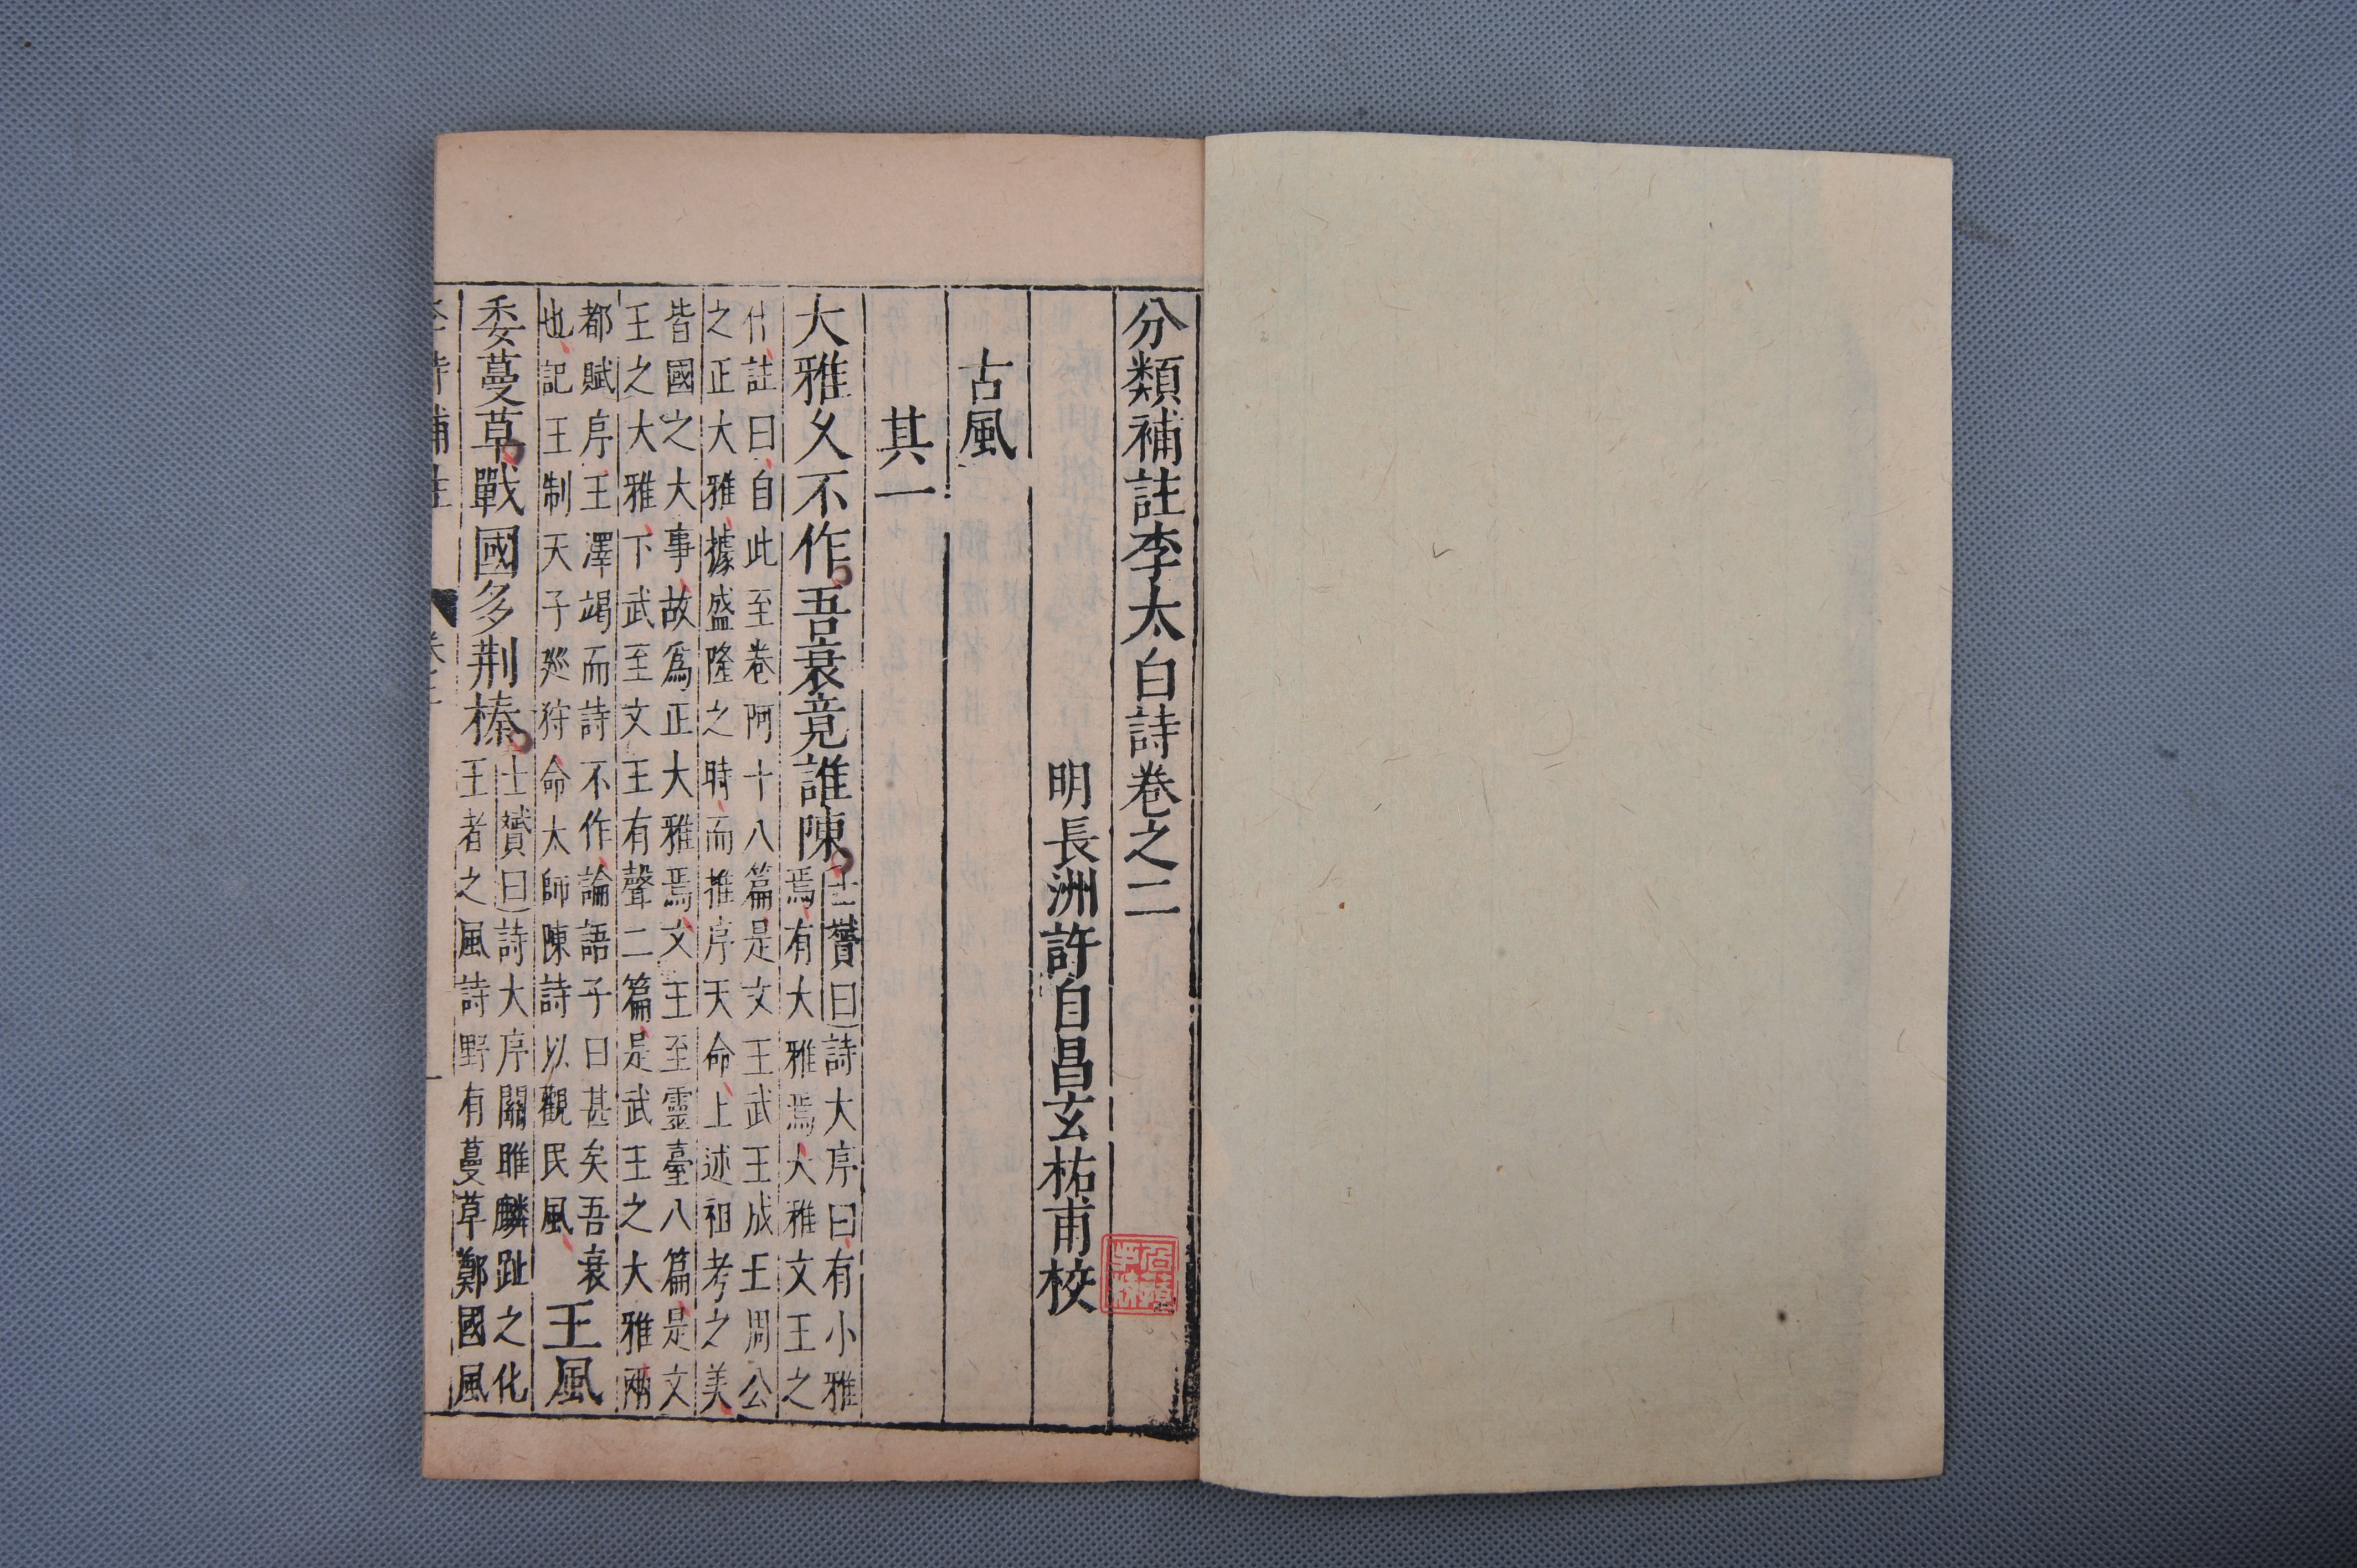 分類補註李太白詩卷之二
明長洲許自昌玄祐甫校
古風
其一
大雅久不作吾衰竟誰陳
士贇曰詩大序曰有小雅
焉有大雅焉大雅文王之
什註曰自此至卷阿十八篇是文王武王成王周公
之正大雅據盛隆之時而推序天命上述祖考之美
皆國之大事故爲正大雅焉文王至靈臺八篇是文
王之大雅下武至文王有聲二篇是武王之大雅兩
都賦序王澤竭而詩不作論語子曰甚矣吾衰
也記王制天子廵狩命太師陳詩以觀民風
王風
委蔓草戰國多荆榛
士贇曰詩大序關雎麟趾之化
王者之風詩野有蔓草鄭國風